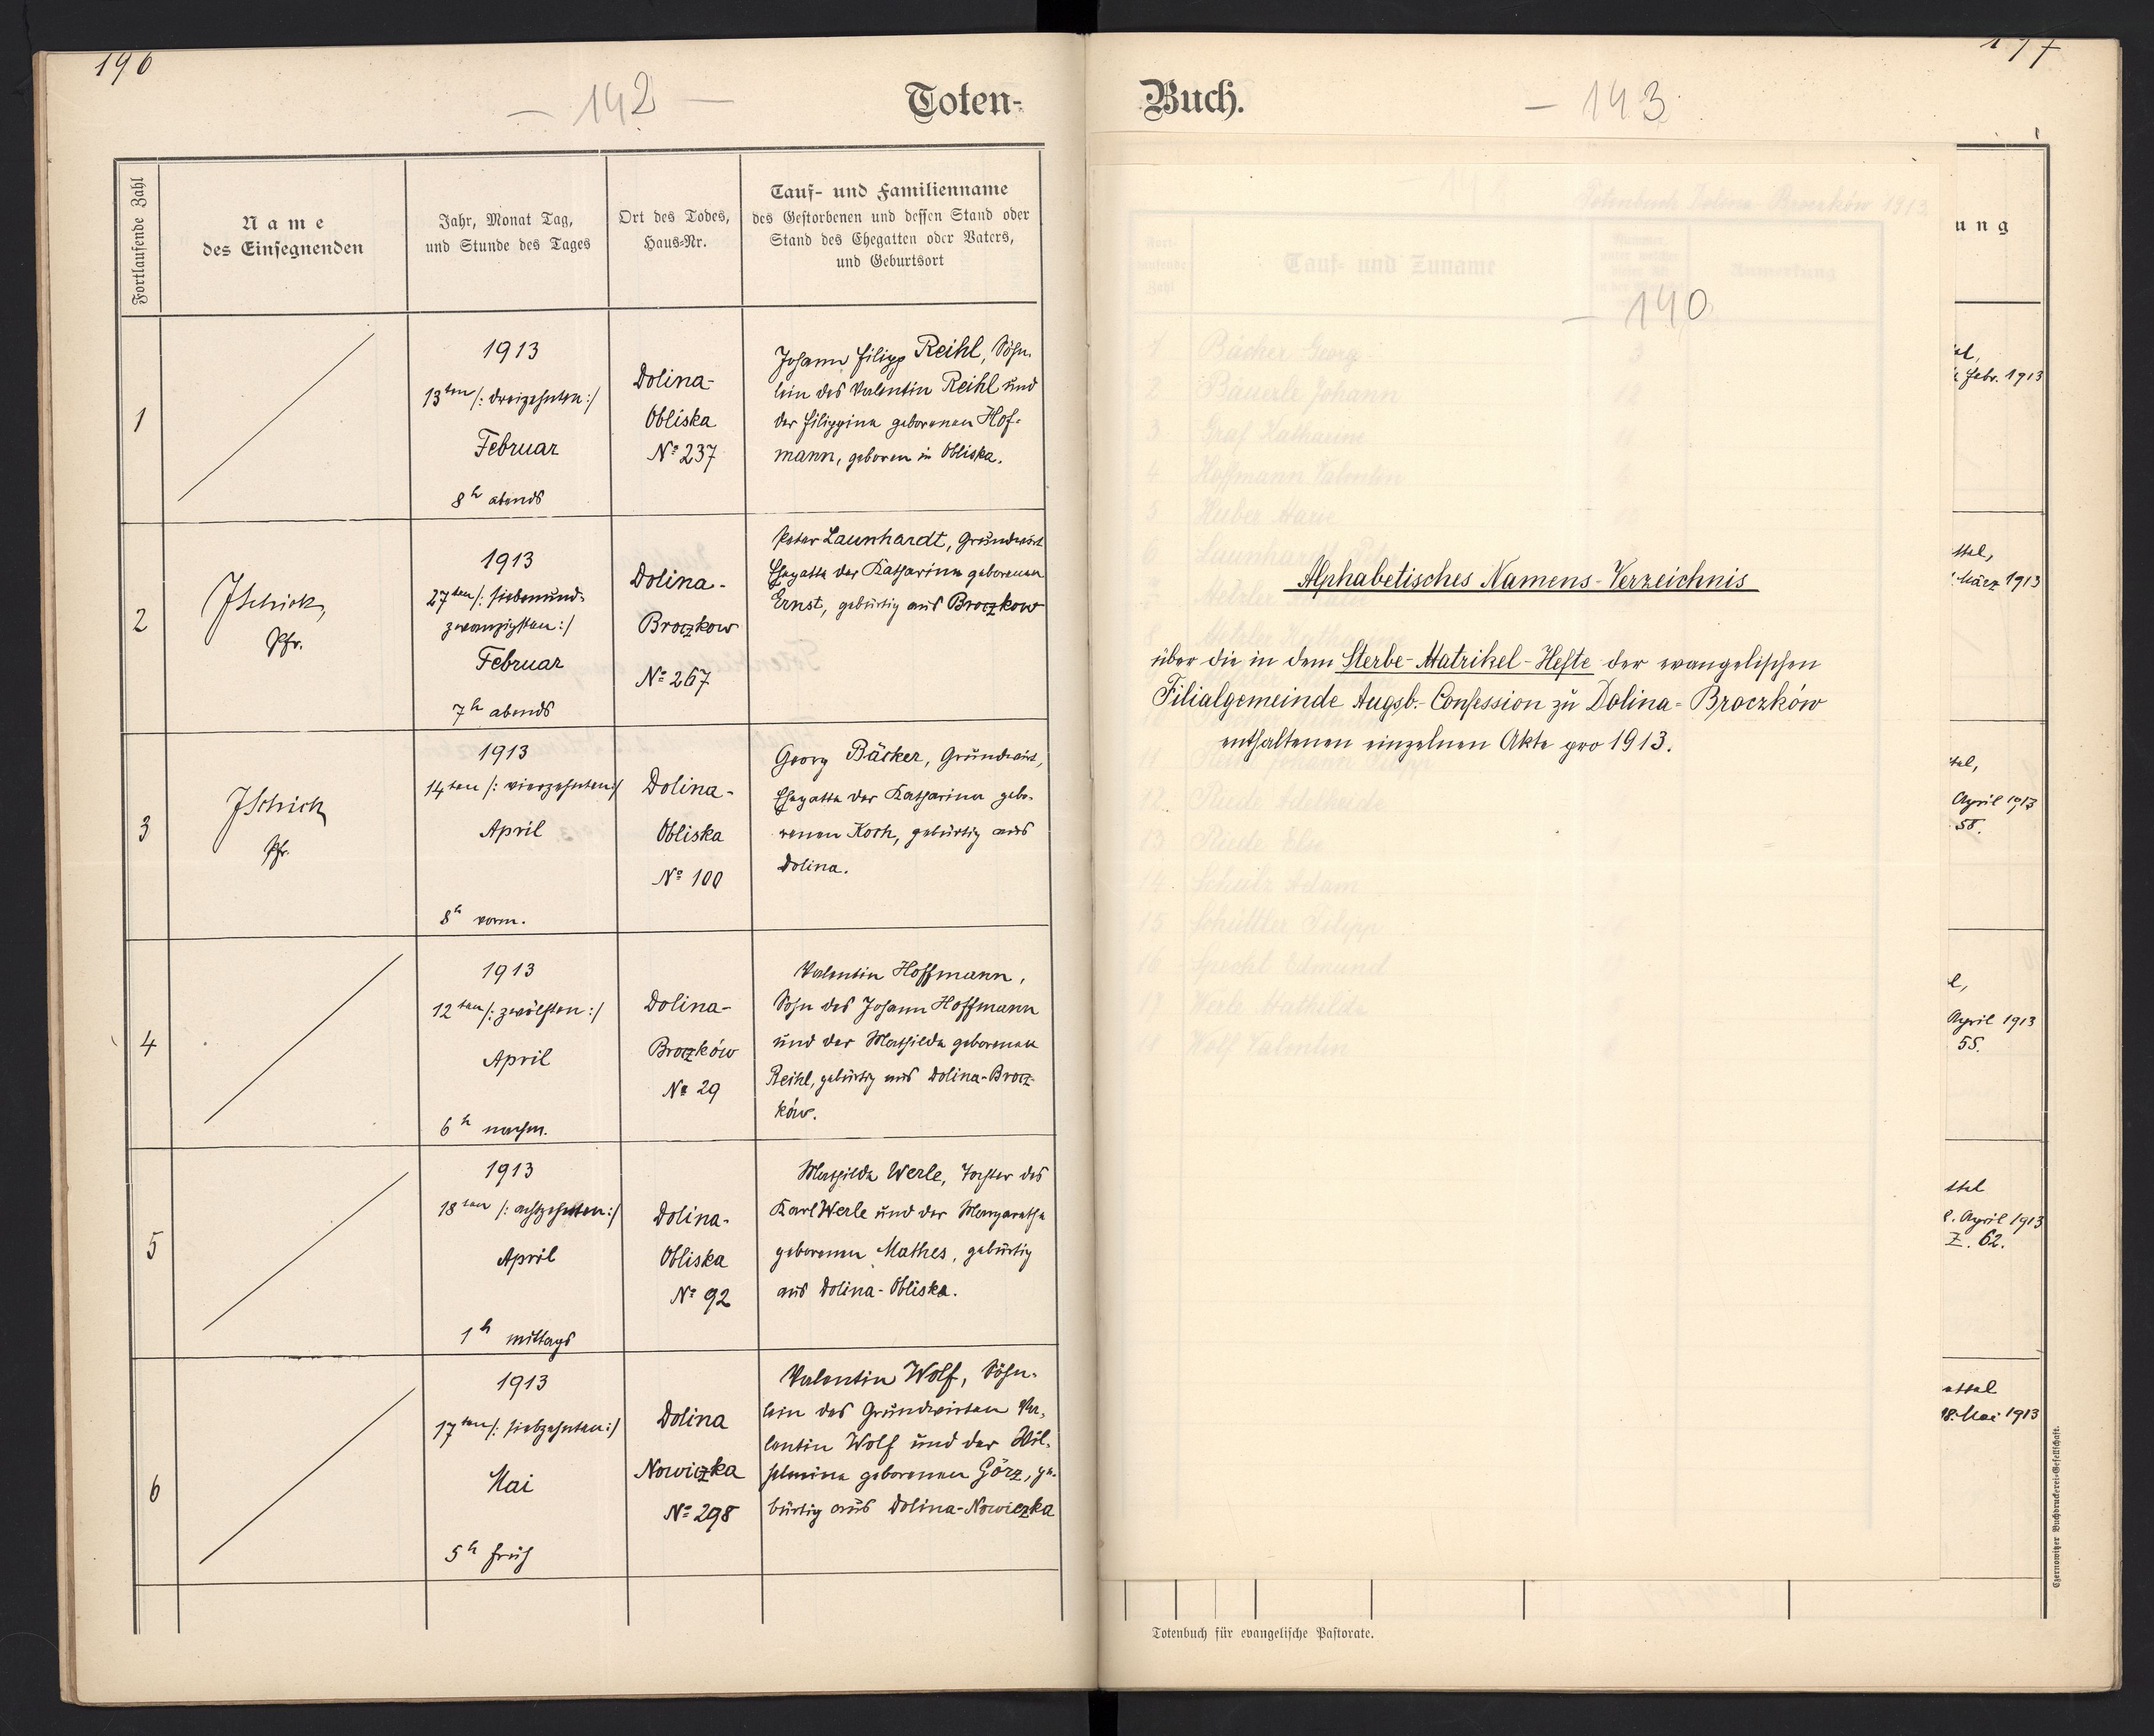 196
— 142 —
Toten-
Fortlaufende Zahl
Name
des Einsegnenden
Jahr, Monat Tag,
und Stunde des Tages
Ort des Todes,
Haus-Nr.
Tauf- und Familienname
des Gestorbenen und dessen Stand oder
Stand des Ehegatten oder Vaters,
und Geburtsort
1
1913
13ten /: dreizehnten :/
Februar
8h abends
Dolina-
Obliska
No 237
Johann Filipp Reihl, Söhn-
lein des Valentin Reihl und
der Filippina geborenen Hof-
mann, geboren in Obliska.
2
JSchick,
Pfr.
1913
27ten /: siebenund-
zwanzigsten :/
Februar
7h abends
Dolina-
Broczkow
No 267
Peter Launhardt, Grundwirt
Ehegatte der Katharina geborenen
Ernst, gebürtig aus Broczkow
3
JSchick
Pfr.
1913
14ten /: vierzehnten :/
April
8h vorm.
Dolina-
Obliska
No 100
Georg Bäcker, Grundwirt,
Ehegatte der Katharina gebo-
renen Koch, gebürtig aus
Dolina.
4
1913
12ten /: zwölften :/
April
6h nachm.
Dolina-
Broczków
No 29
Valentin Hoffmann,
Sohn des Johann Hoffmann
und der Mathilde geborenen
Reihl, gebürtig aus Dolina-Brocz-
ków.
5
1913
18ten /: achtzehnten :/
April
1h mittags
Dolina-
Obliska
No 92
Mathilde Werle, Tochter des
Karl Werle und der Margaretha
geborenen Mathes, gebürtig
aus Dolina-Obliska.
6
1913
17ten /: siebzehnten :/
Mai
5h früh
Dolina
Nowiczka
No 298
Valentin Wolf, Söhn-
lein des Grundwirten Va-
lentin Wolf und der Wil-
helmina geborenen Görz, ge-
bürtig aus Dolina-Nowiczka
Buch.
— 143
— 140
Totenbuch Dolina Broczków 1913.
Tauf- und Zuname
Anmerkung
1 Bäcker Georg 3
2 Bäuerle Johann
3 Graf Katharine
4 Hoffmann Valentin
5 Huber Marie
6 Launhardt Peter
12 Riede Adelheide
13 Riede Else
14 Schulz Adam
15 Schüttler Filipp
16 Specht Edmund
17 Werle Mathilde
Wolf Valentin
Alphabetisches Namens-Verzeichnis
über die in dem Sterbe-Matrikel-Hefte der evangelischen
Filialgemeinde Augsb.-Confession zu Dolina-Broczków
enthaltenen einzelnen Akte pro 1913.
ung
Febr. 1913
März 1913
April 1913
58.
April 1913
55.
April 1913
Z. 62.
18. Mai 1913
Totenbuch für evangelische Pastorate.
Czernowitzer Buchdruckerei-Gesellschaft.